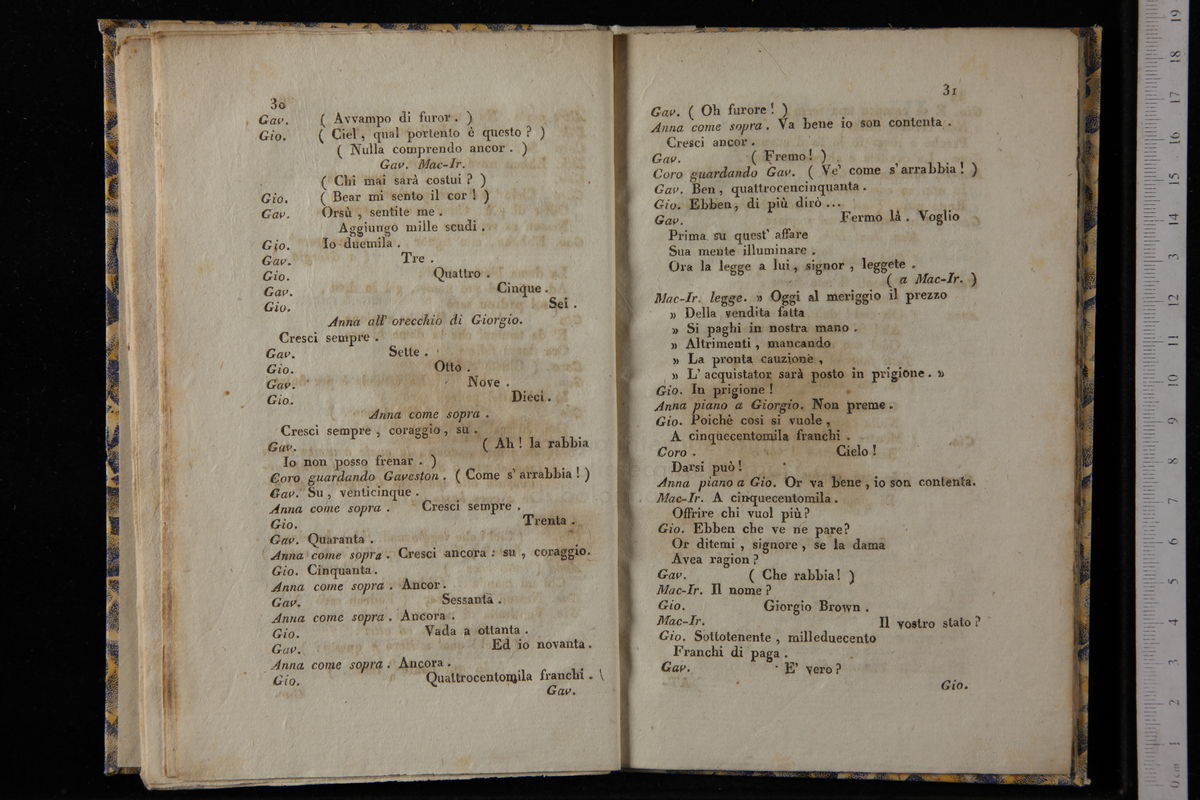 30
Gav. ( Avvampo di furor . )
Gio. ( Ciel , qual portento è questo ? )
( Nulla comprendo ancor . )
Gav. Mac-Ir.
( Chi mai sarà costui ? )
Gio. ( Bear mi sento il cor ! )
Gav. Orsù , sentite me .
Aggiungo mille scudi .
Gio. Io duemila .
Gav. Tre .
Gio. Quattro .
Gav. Cinque .
Gio. Sei .
Anna all' orecchio di Giorgio.
Cresci sempre .
Gav. Sette .
Gio. Otto .
Gav. Nove .
Gio. Dieci .
Anna come sopra .
Cresci sempre , coraggio , su .
Gav. ( Ah ! la rabbia
Io non posso frenar . )
Coro guardando Gaveston . ( Come s' arrabbia ! )
Gav. Su , venticinque .
Anna come sopra . Cresci sempre .
Gio. Trenta .
Gav. Quaranta .
Anna come sopra . Cresci ancora : su , coraggio.
Gio. Cinquanta .
Anna come sopra . Ancor .
Gav. Sessanta .
Anna come sopra . Ancora .
Gio. Vada a ottanta .
Gav. Ed io novanta .
Anna come sopra . Ancora .
Gio. Quattrocentomila franchi .
Gav.
31
Gav. ( Oh furore ! )
Anna come sopra . Va bene io son contenta .
Cresci ancor .
Gav. ( Fremo ! )
Coro guardando Gav. ( Ve' come s' arrabbia ! )
Gav. Ben , quattrocencinquanta .
Gio. Ebben , di più dirò ...
Gav. Fermo là . Voglio
Prima su quest' affare
Sua mente illuminare .
Ora la legge a lui , signor , leggete .
( a Mac-Ir. )
Mac-Ir. legge. » Oggi al meriggio il prezzo
» Della vendita fatta
» Si paghi in nostra mano .
» Altrimenti , mancando
» La pronta cauzione ,
» L' acquistator sarà posto in prigione . »
Gio. In prigione !
Anna piano a Giorgio. Non preme .
Gio. Poichè così si vuole ,
A cinquecentomila franchi .
Coro . Cielo !
Darsi può !
Anna piano a Gio. Or va bene , io son contenta.
Mac-Ir. A cinquecentomila .
Offrire chi vuol più ?
Gio. Ebben che ve ne pare ?
Or ditemi , signore , se la dama
Avea ragion ?
Gav. ( Che rabbia ! )
Mac-Ir. Il nome ?
Gio. Giorgio Brown .
Mac-Ir. Il vostro stato ?
Gio. Sottotenente , milleduecento
Franchi di paga .
Gav. E' vero ?
Gio.
0 cm 1 2 3 4 5 6 7 8 9 10 11 12 13 14 15 16 17 18 19